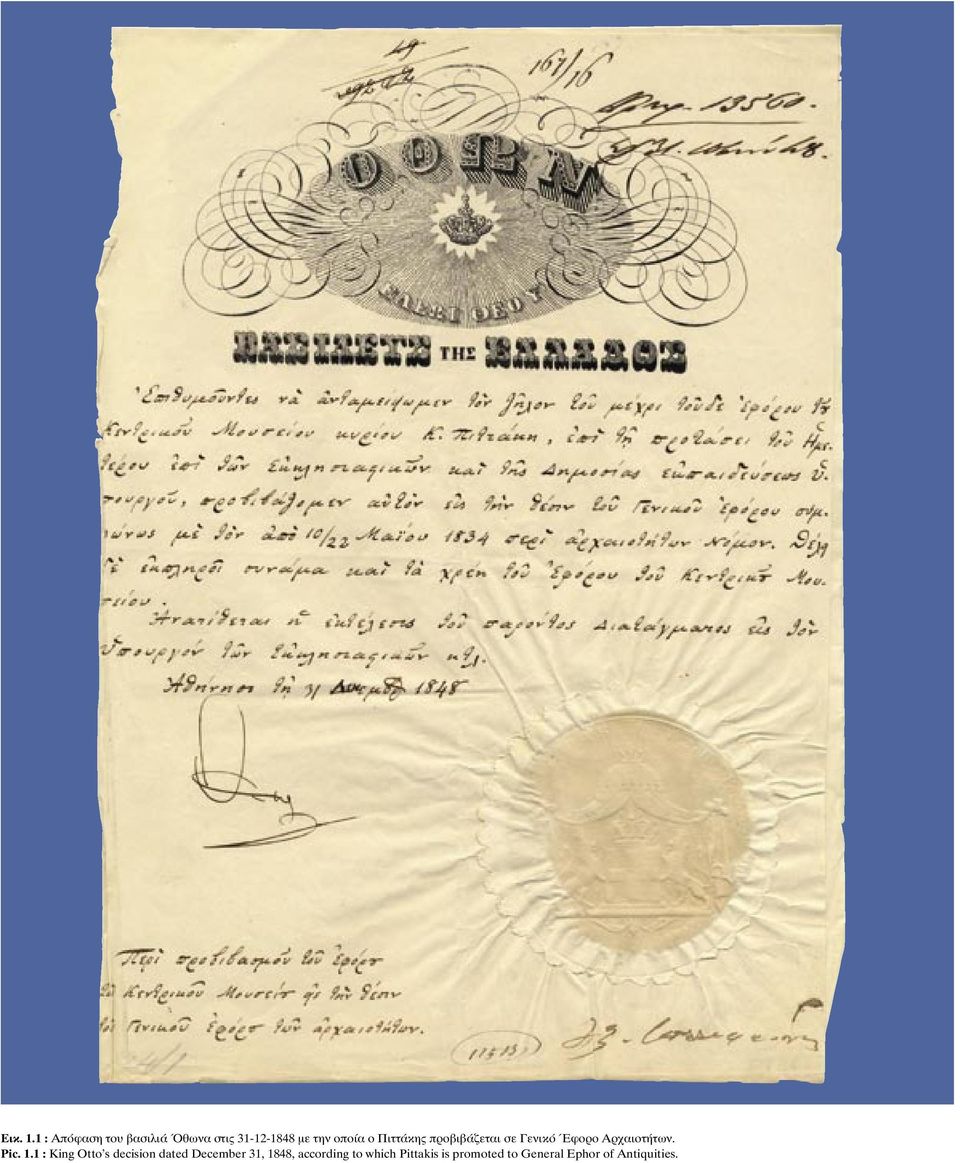 49
167/16
13560.
ΟΘΩΝ
ΕΛΕΩι ΘΕΟΥ
ΒΑΣΙΛΕΥΣ ΤΗΣ ΕΛΛΑΔΟΣ
Ἐπιθυμοῦντες νὰ ἀνταμείψωμεν τὸν ζῆλον τοῦ μέχρι τοῦδε Ἐφόρου τοῦ
Κεντρικοῦ Μουσείου κυρίου Κ. Πιττάκη, ἐπὶ τῇ προτάσει τοῦ Ἡμε-
τέρου ἐπὶ τῶν Ἐκκλησιαστικῶν καὶ τῆς Δημοσίας ἐκπαιδεύσεως Ὑ-
πουργοῦ, προβιβάζομεν αὐτὸν εἰς τὴν θέσιν τοῦ Γενικοῦ Ἐφόρου συμ-
φώνως μὲ τὸν ἀπὸ 10/22 Μαΐου 1834 περὶ ἀρχαιοτήτων Νόμον. Θέλει
δὲ ἐκπληροῖ συνάμα καὶ τὰ χρέη τοῦ Ἐφόρου τοῦ Κεντρικοῦ Μου-
σείου.
Ἀνατίθεται ἡ ἐκτέλεσις τοῦ παρόντος Διατάγματος εἰς τὸν
Ὑπουργόν τῶν Ἐκκλησιαστικῶν κτλ.
Ἀθήνησι τῇ 31 Δεκεμβρ 1848
Περὶ προβιβασμοῦ τοῦ Ἐφόρου
τοῦ Κεντρικοῦ Μουσείου εἰς τὴν θέσιν
τοῦ Γενικοῦ Ἐφόρου τῶν ἀρχαιοτήτων.
Εικ. 1.1 : Απόφαση του βασιλιά Όθωνα στις 31-12-1848 με την οποία ο Πιττάκης προβιβάζεται σε Γενικό Έφορο Αρχαιοτήτων.
Pic. 1.1 : King Otto's decision dated December 31, 1848, according to which Pittakis is promoted to General Ephor of Antiquities.